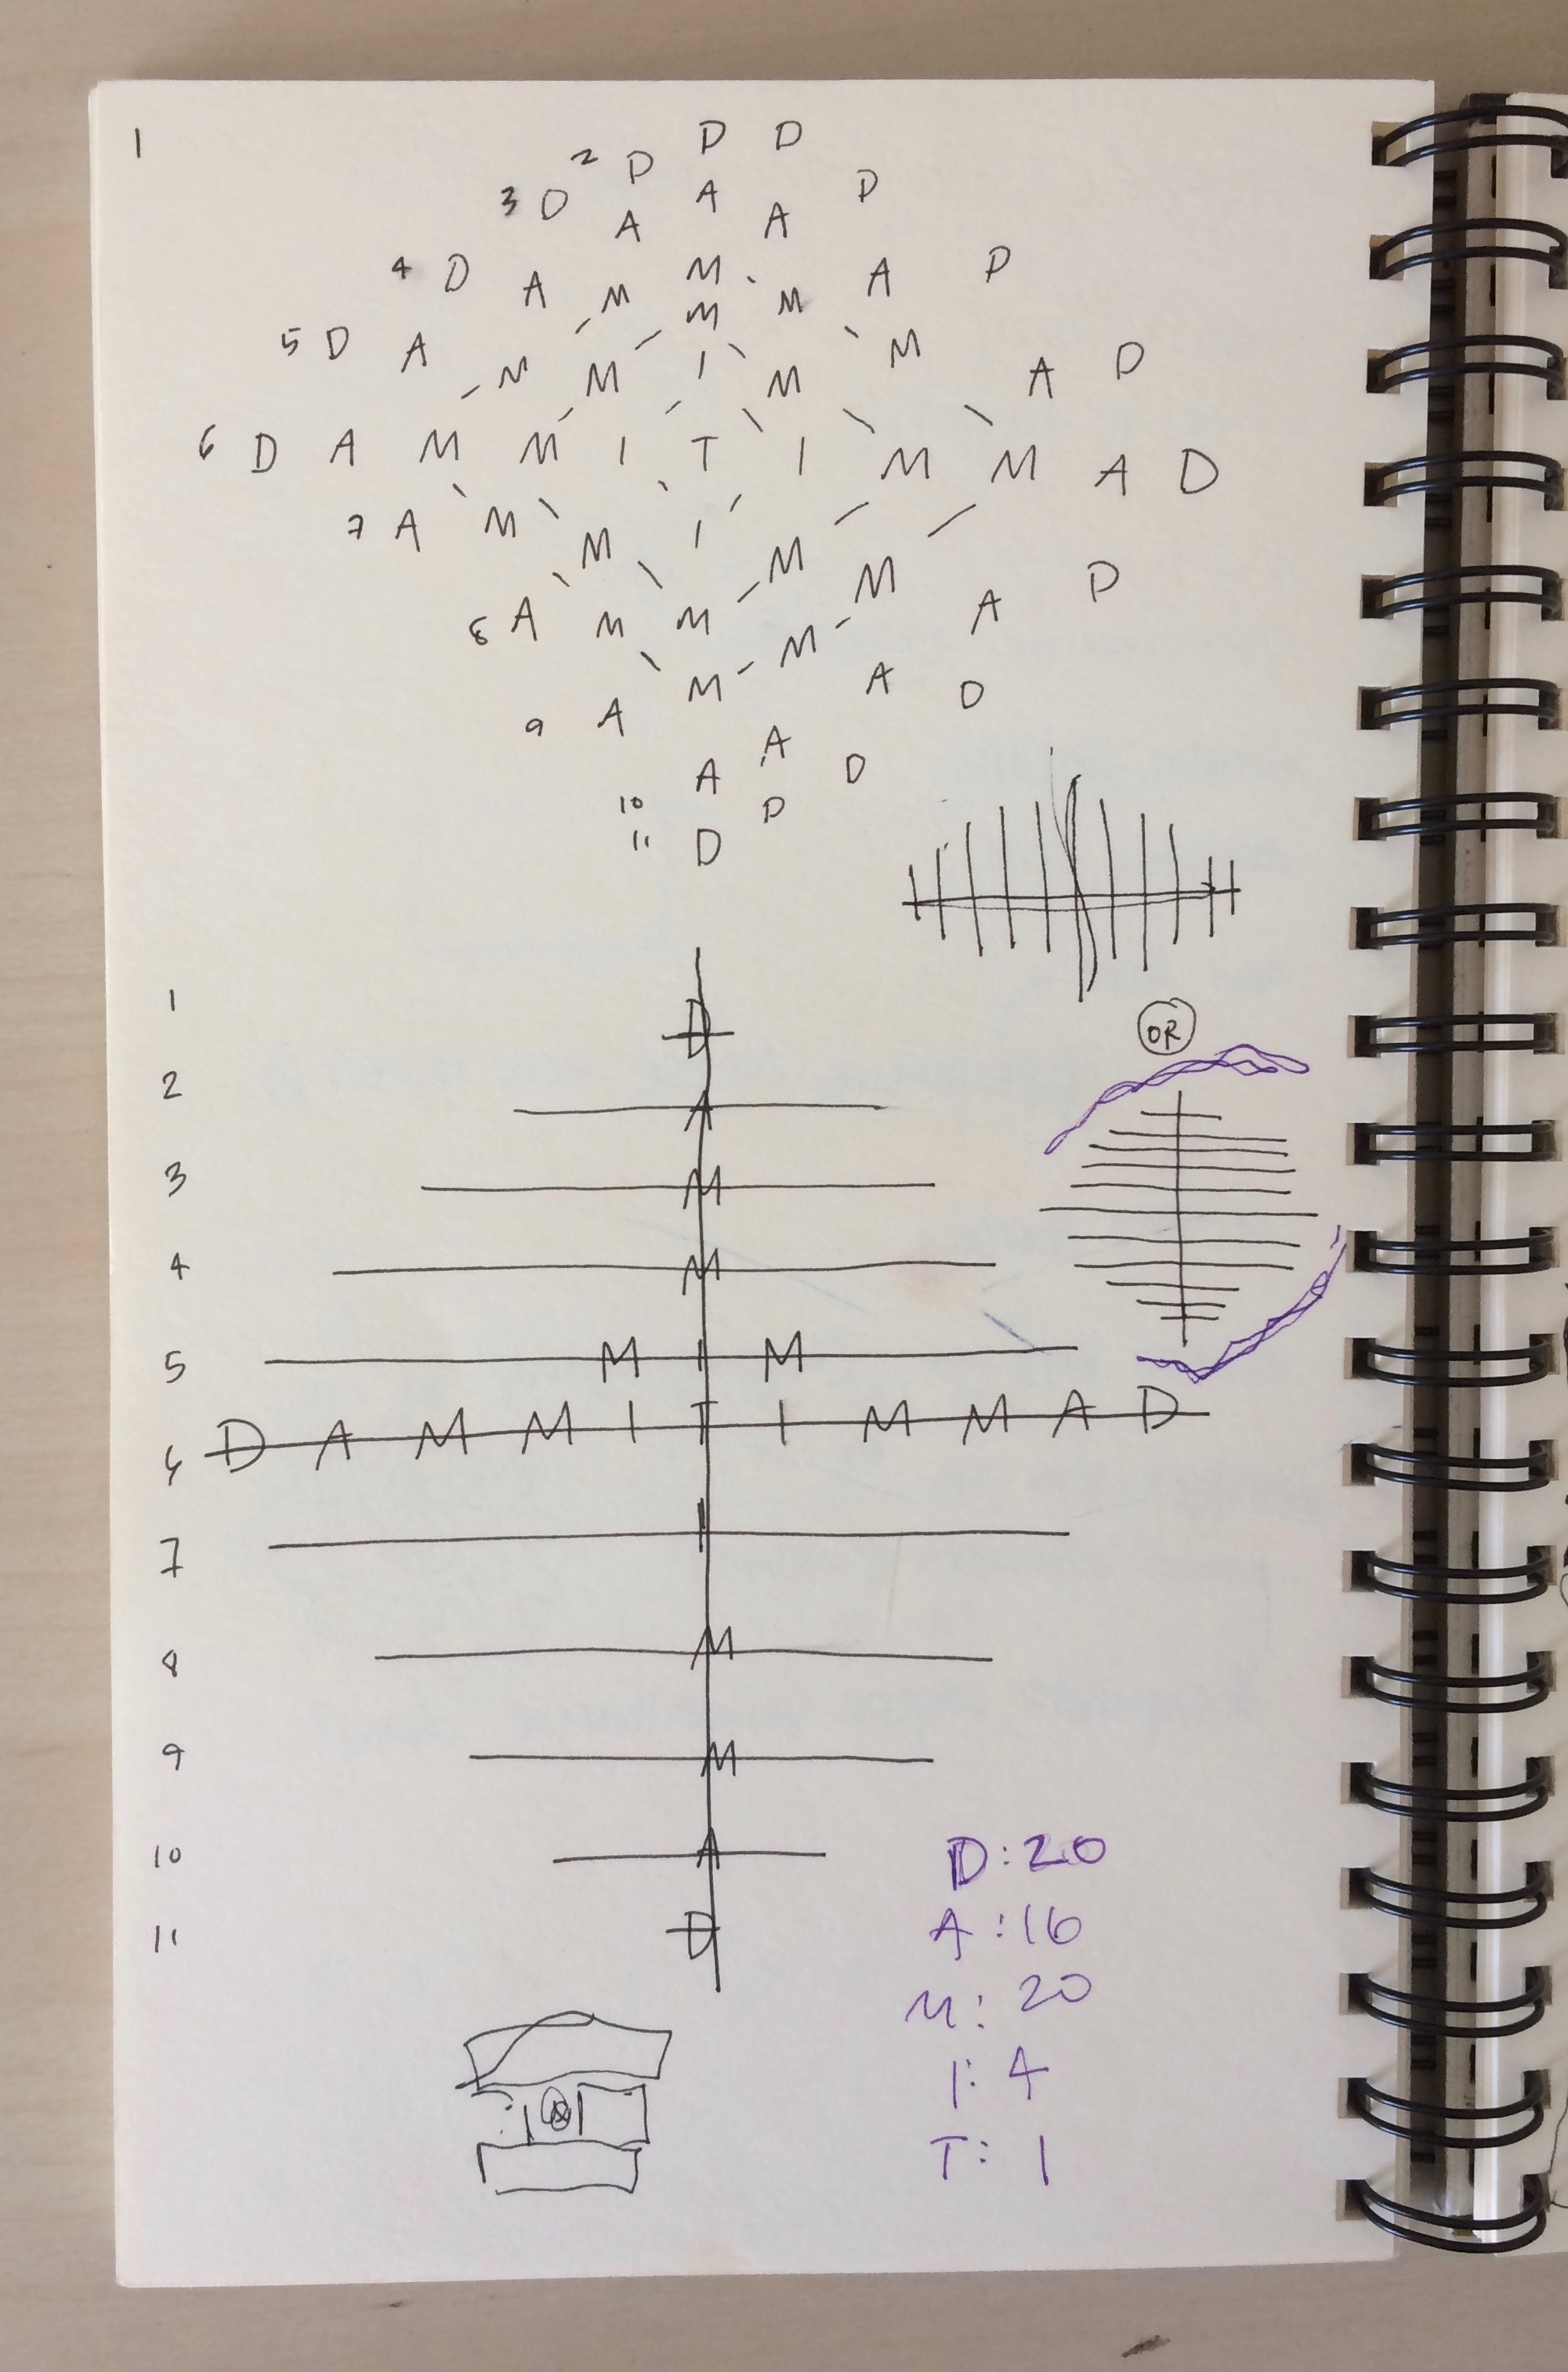 1 D D
2 D A D
3 D A A
4 D A M M M A D
M
5 D A M M I M M A D
6 D A M M I T I M M A D
7 A M M I M M D
8 A M M M A
M A D
9 A A D
A
10 D
11 D
OR
1 D
2 A
3 M
4 M
5 M I M
6 D A M M I T I M M A D
7 I
8 M
9 M
10 A
11 D
D: 20
A: 16
M: 20
I: 4
T: 1